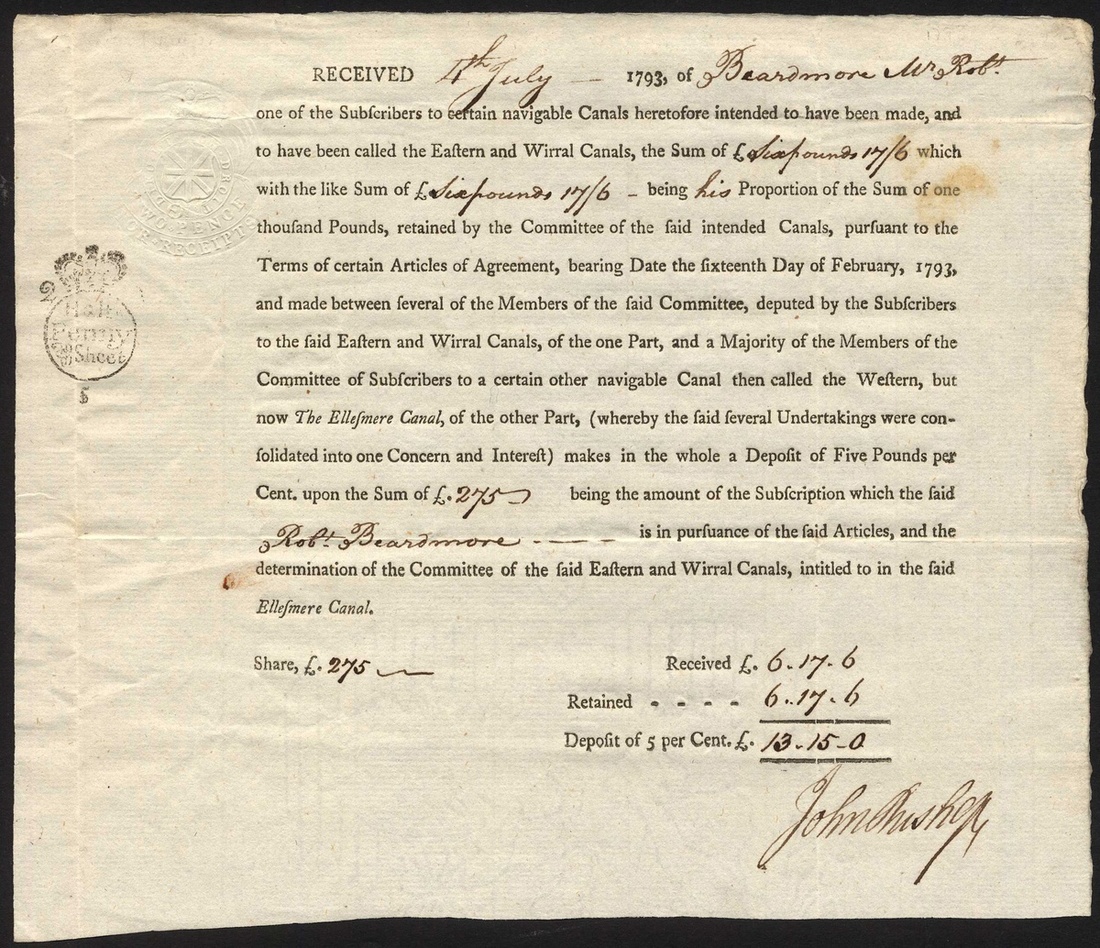 RECEIVED 4th July — 1793, of Beardmore Mr Robt.
one of the Subſcribers to certain navigable Canals heretofore intended to have been made, and
to have been called the Eaſtern and Wirral Canals, the Sum of £ Six pounds 17/6 which
with the like Sum of £ Six pounds 17/6 – being his Proportion of the Sum of one
thouſand Pounds, retained by the Committee of the ſaid intended Canals, purſuant to the
Terms of certain Articles of Agreement, bearing Date the ſixteenth Day of February, 1793,
and made between ſeveral of the Members of the ſaid Committee, deputed by the Subſcribers
to the ſaid Eaſtern and Wirral Canals, of the one Part, and a Majority of the Members of the
Committee of Subſcribers to a certain other navigable Canal then called the Weſtern, but
now The Elleſmere Canal, of the other Part, (whereby the ſaid ſeveral Undertakings were con-
ſolidated into one Concern and Intereſt) makes in the whole a Depoſit of Five Pounds per
Cent. upon the Sum of £. 275 being the amount of the Subſcription which the ſaid
Robt. Beardmore - — — - is in purſuance of the ſaid Articles, and the
determination of the Committee of the ſaid Eaſtern and Wirral Canals, intitled to in the ſaid
Elleſmere Canal.
Share, £. 275
Received £. 6-17-6
Retained - - - - 6-17-6
Depoſit of 5 per Cent. £. 13-15-0
John
TWO PENCE
FOR RECEIPTS
Half
Penny
Sheet
5